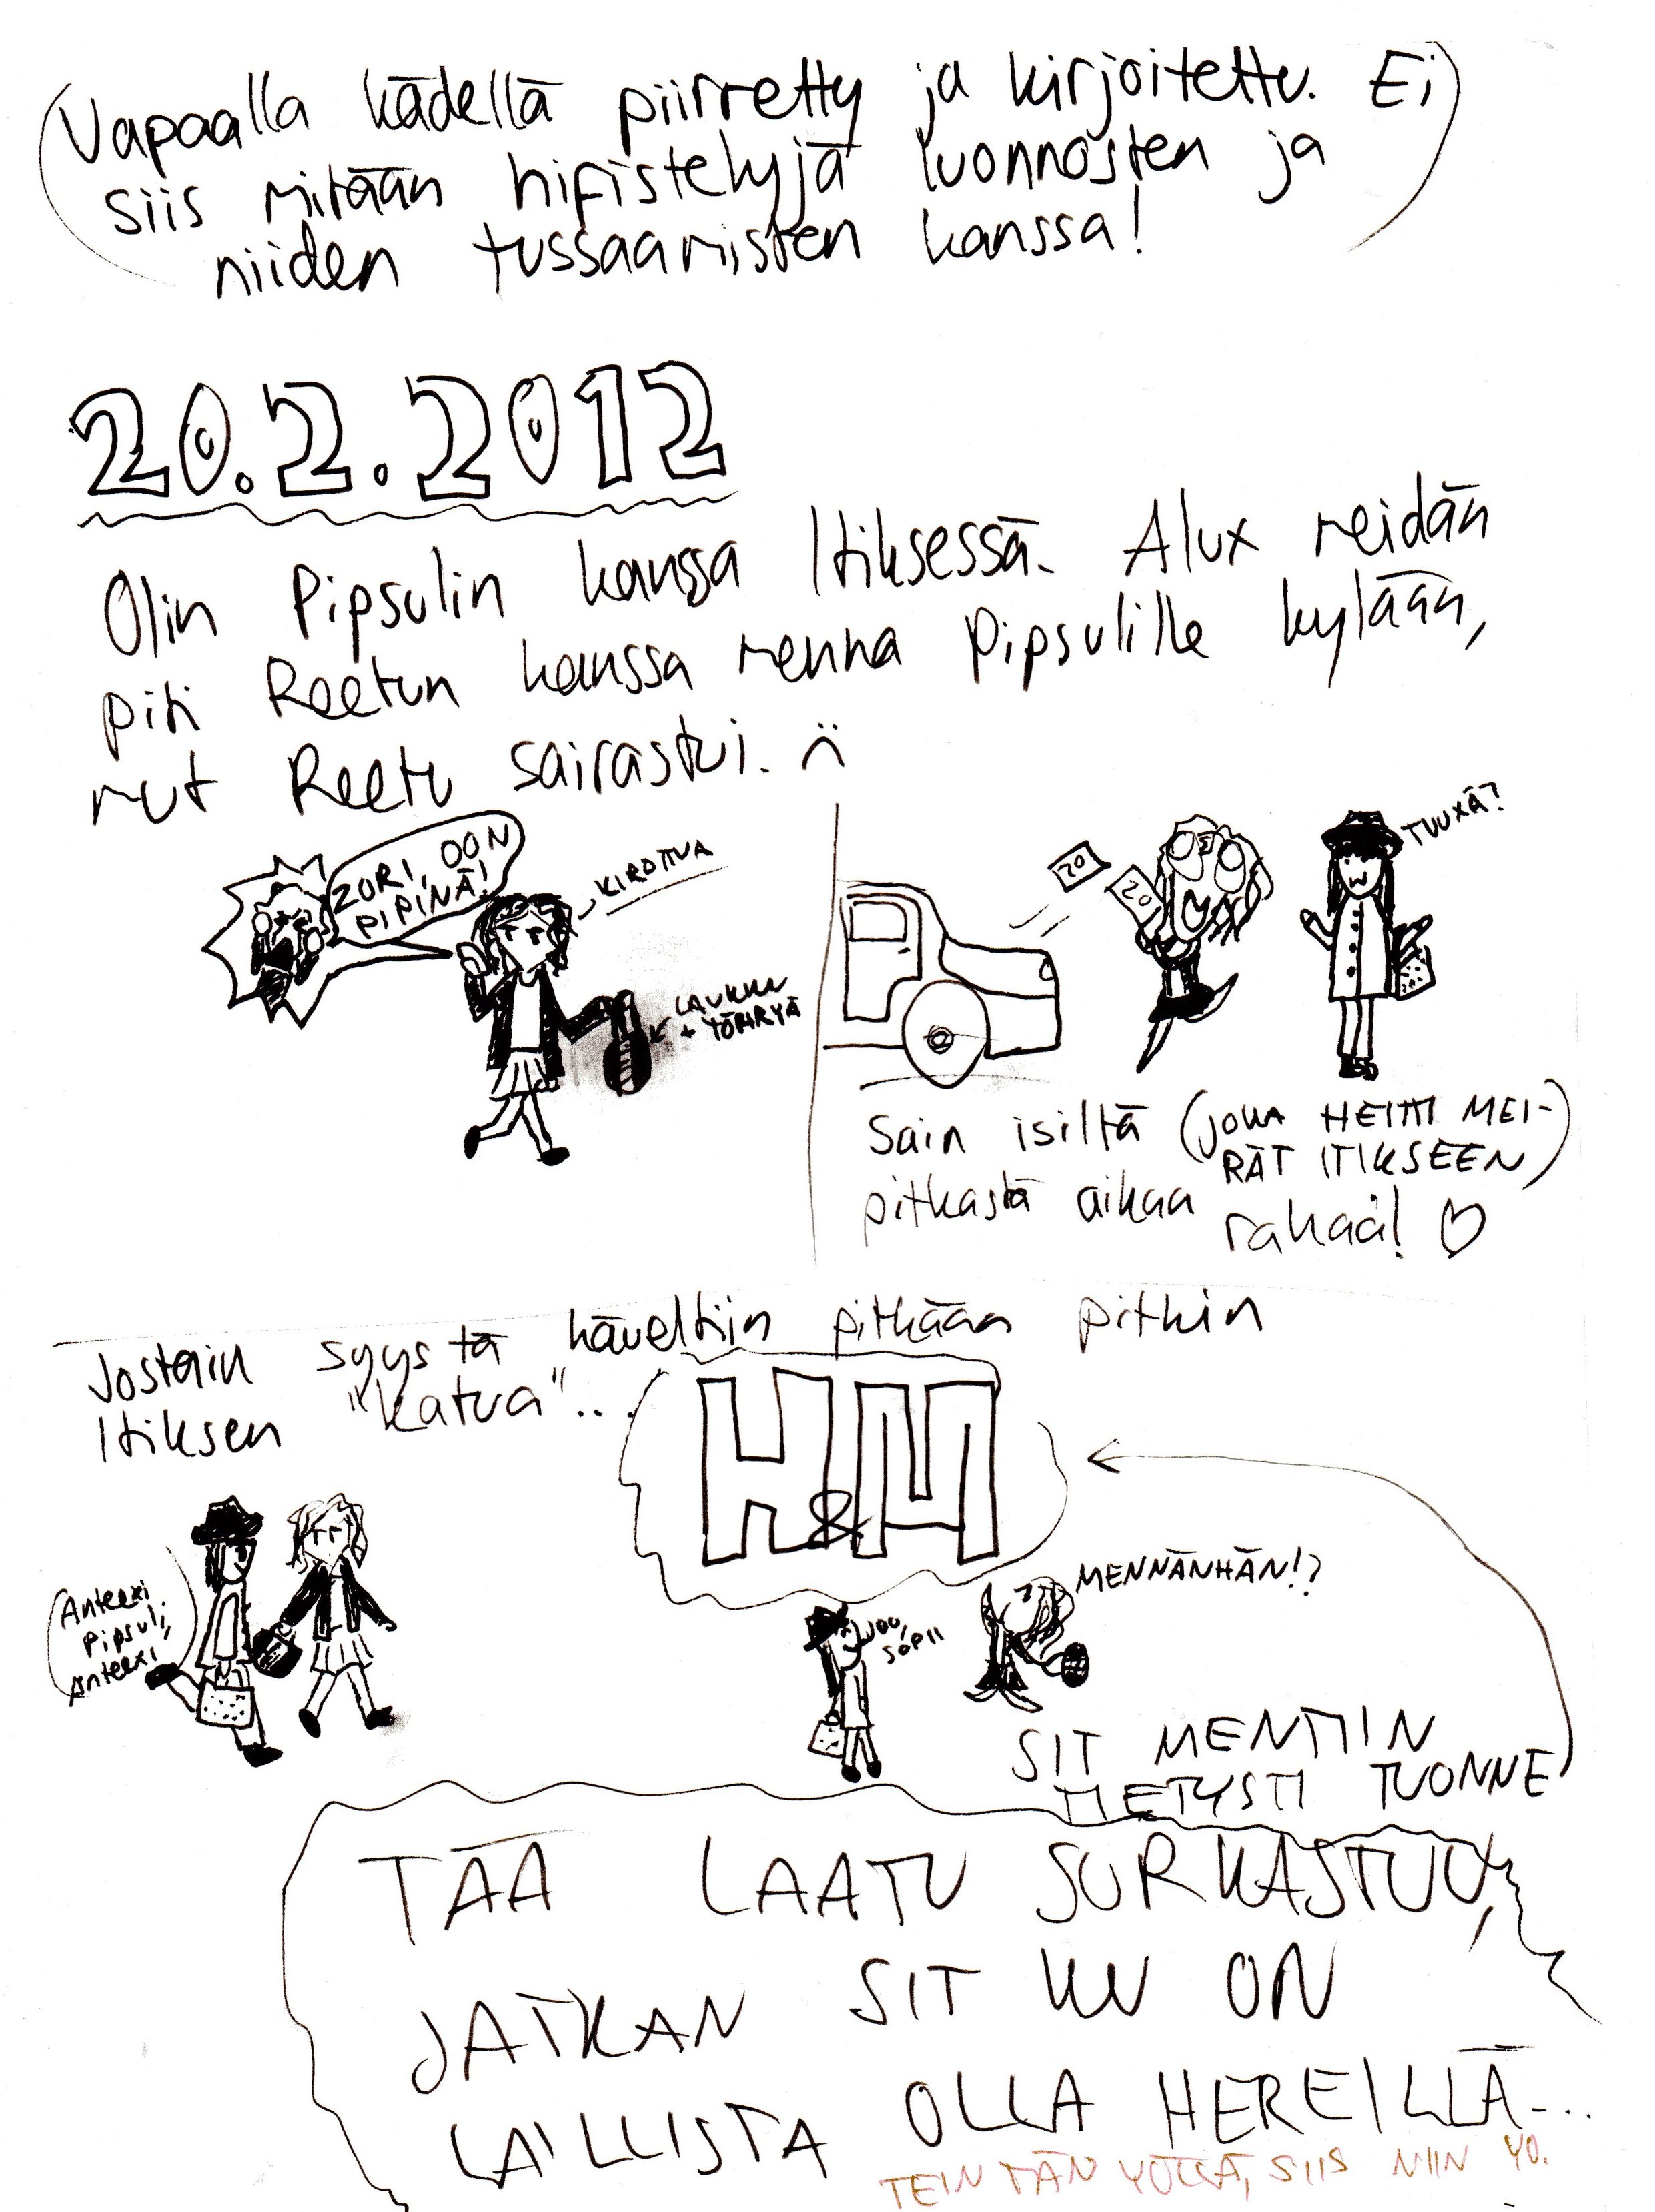 (Vapaalla kädellä piirretty ja kirjoitettu. Ei
siis mitään hifistelyjä luonnosten ja
niiden tussaamisten kanssa!)
20.2.2012
Olin Pipsulin kanssa Itiksessä. Alux meidän
piti Reetun kanssa mennä Pipsulille kylään,
mut Reetu sairastui. :(
ZORI, OON
PIPINÄ!
KIROTTUA
LAUKKU
+ YÖPIRYÄ
20
20
TUUXÄ?
Sain isiltä (JOKA HEITTI MEI-
RÄT ITIKSEEN)
pitkästä aikaa
rahaa! ♡
Jostain syystä käveltiin pitkään pitkin
Itiksen "katua"...
H&M
Anteexi
Pipsuli,
Anteexi
JOO,
SOPII
MENNÄNHÄN!?
SIT MENTIIN
TIETYSTI TUONNE
TÄÄ LAATU SURKASTUU,
JATKAN SIT KU ON
LAILLISTA OLLA HEREILLÄ...
TEIN TÄN YÖLLÄ, SIIS NIIN YÖ.